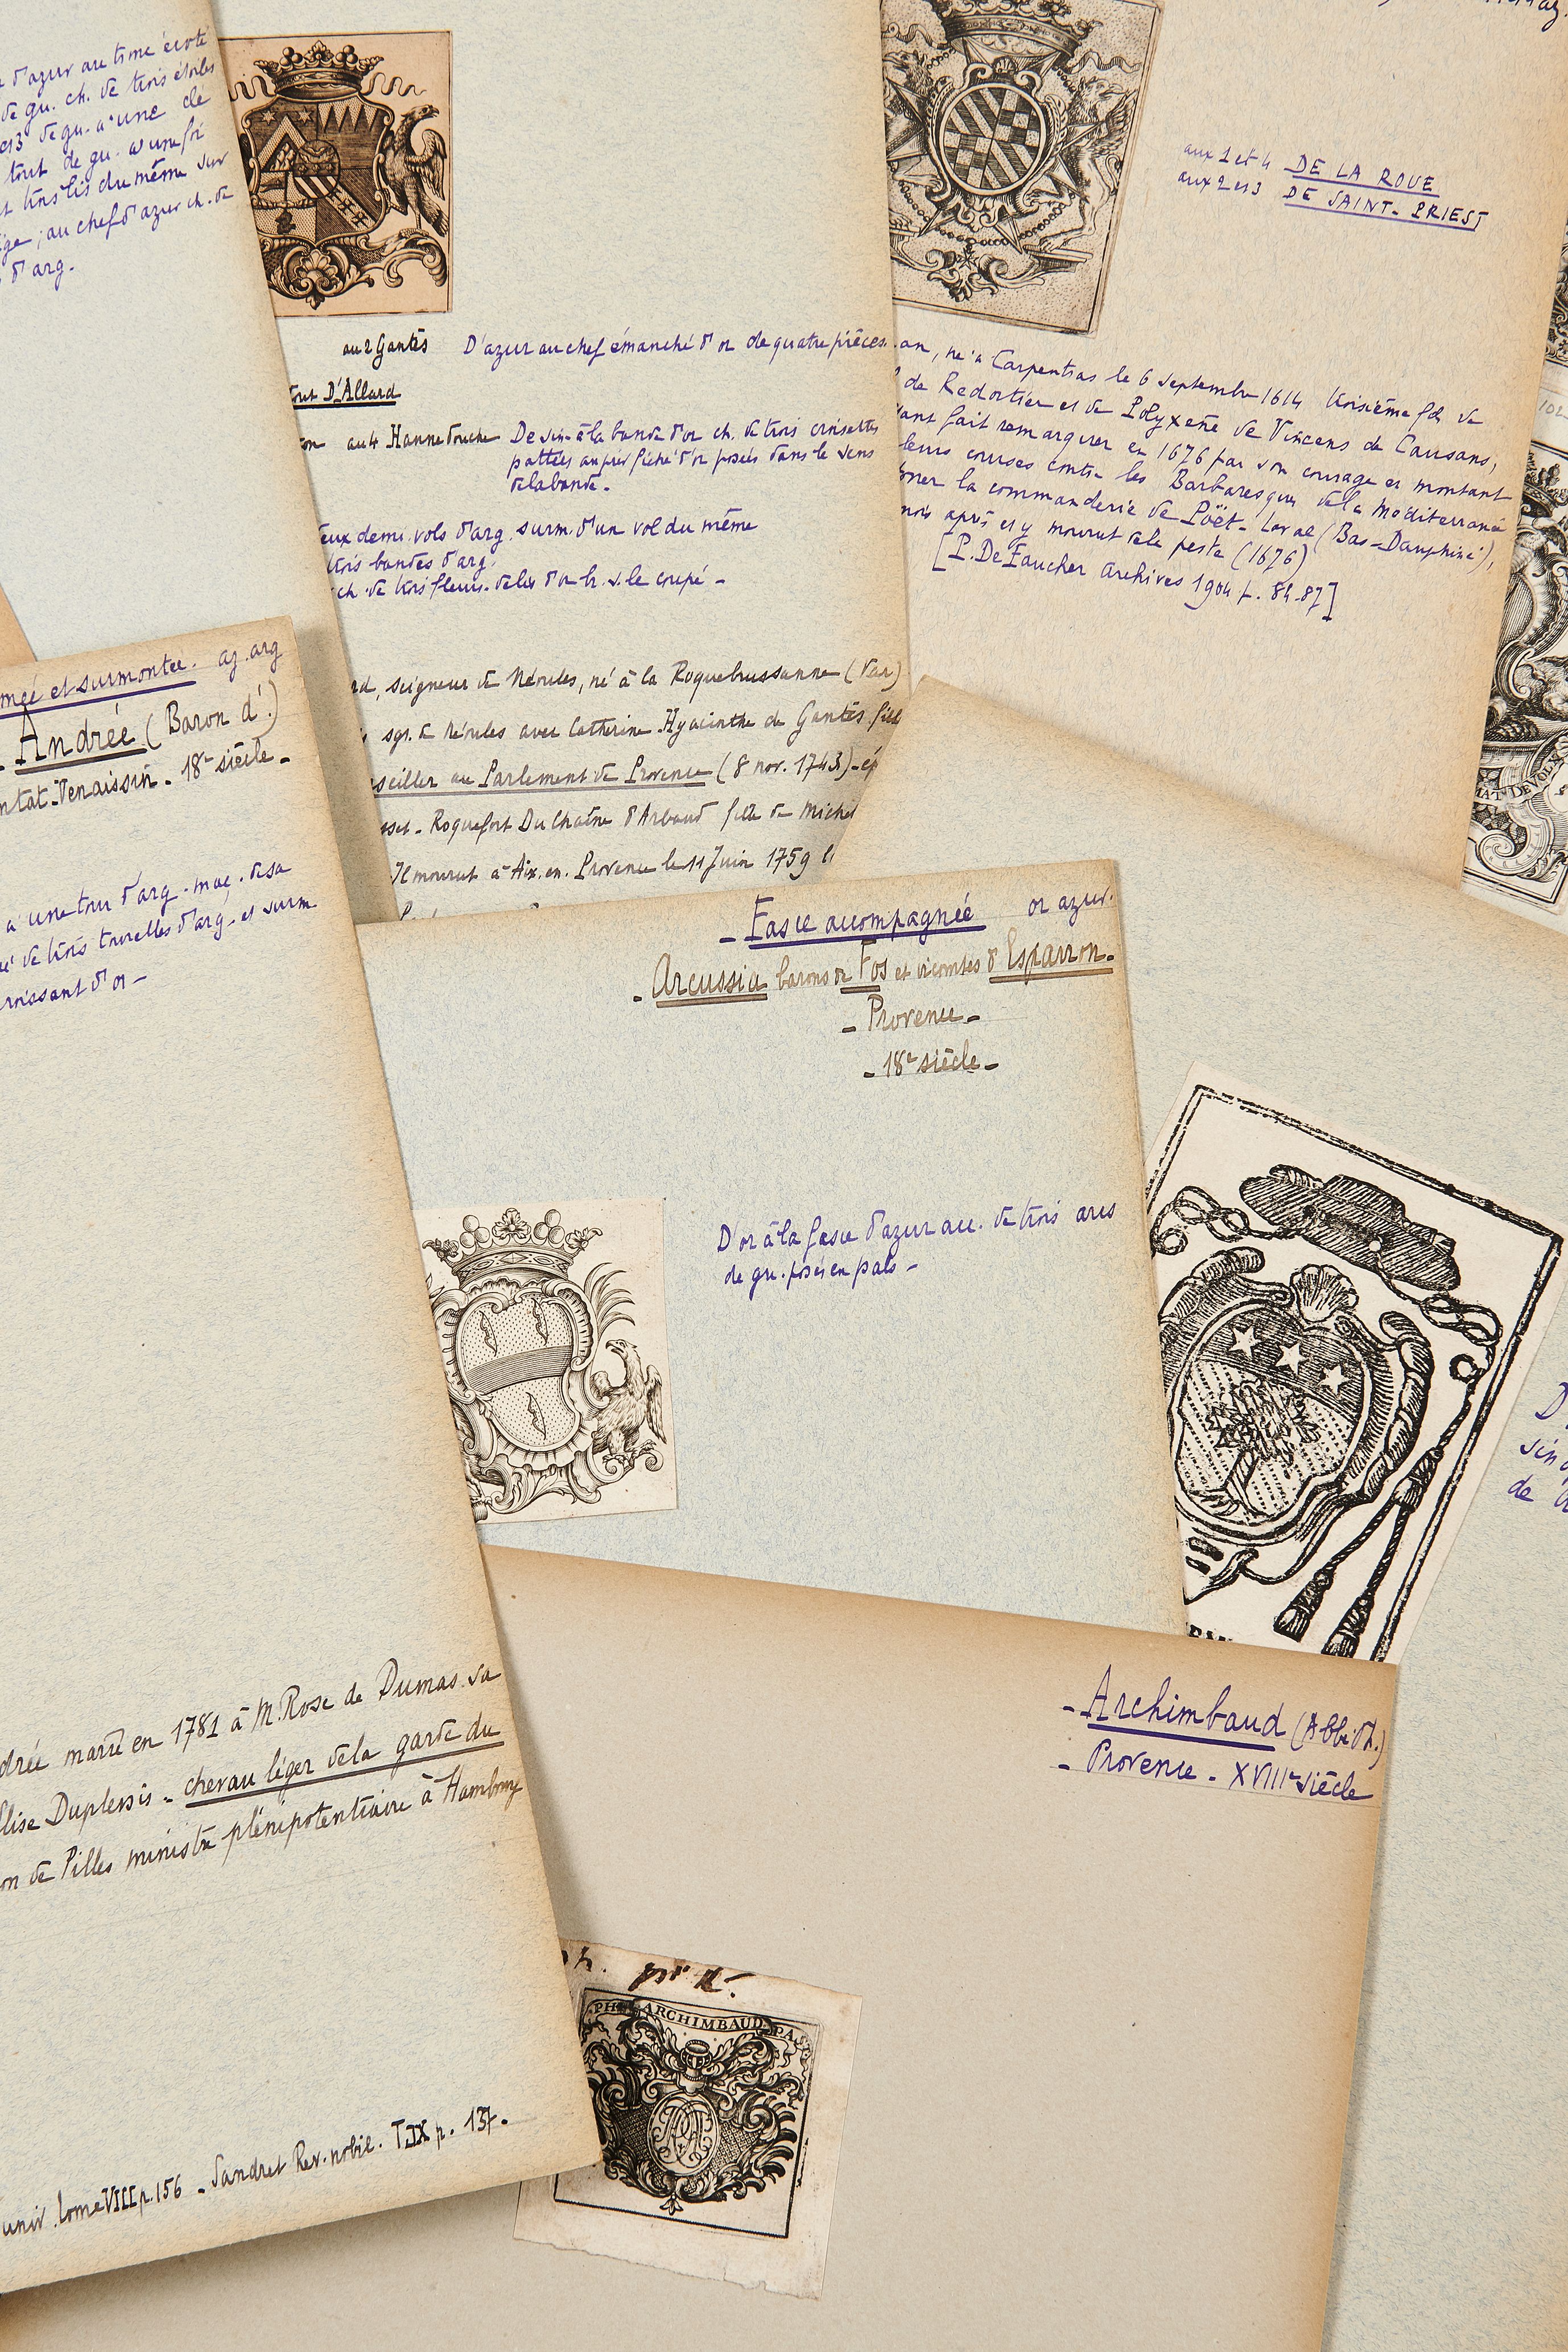 d'azur au
de gu. ch. de trois étoiles
et 3 de gu. a une clé
tout de gu. a une
trois lis du même sur
; au chef d'azur ch. de
d'arg.
au 2 Gantès D'azur au chef émanché d'or de quatre pièces.
tout D'Allard
au 4 Hannedouche De sin. à la bande d'or ch. de trois croisettes
pattées au pied fiché d'or posées dans le sens
de la bande.
demi. vols d'arg. surm. d'un vol du même
trois bandes d'arg.
ch. de trois fleurs. de lis d'or b. s. le coupé -
seigneur de Néoules, né à la Roquebrussanne (Var)
sgr. de Néoules avec Catherine-Hyacinthe de Gantès fille
seiller au Parlement de Provence (8 nov. 1743) - ép
- Roquefort Du Chaîne d'Arbaud fille de Michel
Il mourut à Aix. en. Provence le 11 Juin 1759
aux 1 et 4 DE LA ROUE
aux 2 et 3 DE SAINT-PRIEST
an, né à Carpentras le 6 Septembre 1614 troisième fils de
de Redortier et de Polyxène de Vincens de Causans,
ant fait remarquer en 1676 par son courage et montant
leurs courses contre les Barbaresques de la Méditerranée
la commanderie de Poët-Laval (Bas-Dauphiné),
mois après et y mourut de la peste (1676)
[P. De Faucher Archives 1904 p. 84-87]
102
et surmontée. az. arg
- Andrée (Baron d'.)
ntat-Venaissin - 18e siècle -
a une tour d'arg. maç. de sa
de trois tourelles d'arg. et surm.
croissant d'or -
drée marié en 1781 à M. Rose de Dumas. sa
Elise Duplessis - chevau léger de la garde du
on de Pilles ministre plénipotentiaire à Hambourg
univ. tome VIII p. 156 - Sandret Rev. nobil. T. IX p. 137.
- Fasce accompagnée or azur.
- Arcussia barons de Fos et vicomtes d'Esparron -
- Provence -
- 18e siècle -
D'or à la fasce d'azur acc. de trois arcs
de gu. posés en pals -
- Archimbaud (Abbé Ph.)
- Provence - XVIIIe siècle
PH. ARCHIMBAUD PA